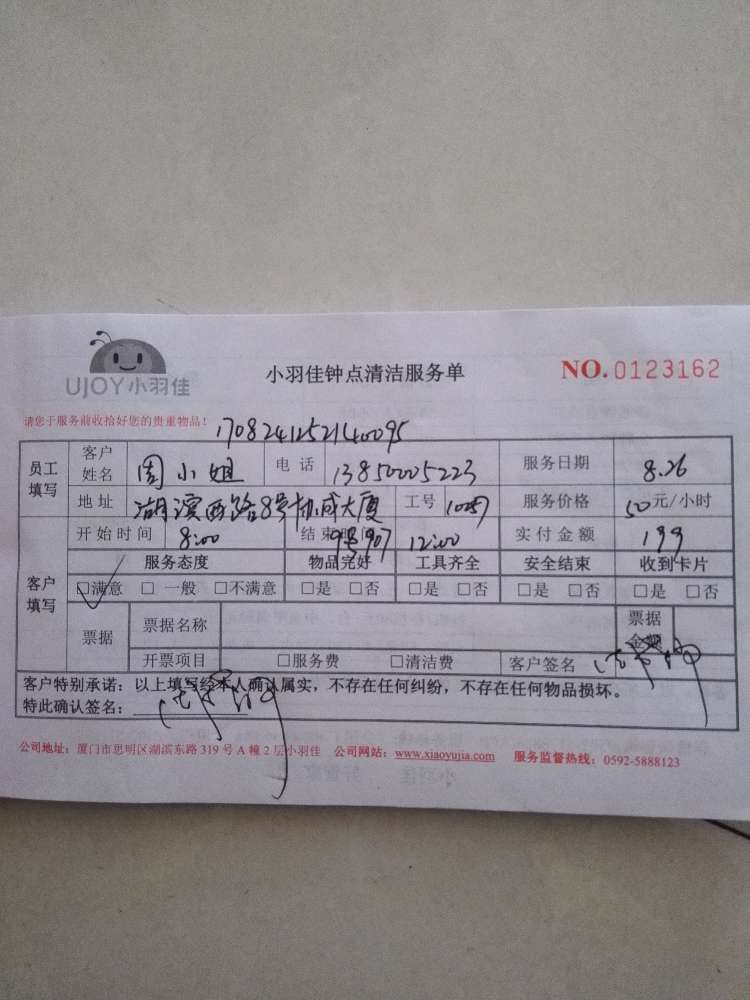 UJOY小羽佳
小羽佳钟点清洁服务单
NO.0123162
请您于服务前收拾好您的贵重物品!
1708241252140095
员工填写 客户姓名 周小姐 电话 13850005223 服务日期 8.26
地址 湖滨西路8号协成大厦 工号 服务价格 50元/小时
开始时间 8:00 结束时间 12:00 实付金额 199
客户填写 服务态度 物品完好 工具齐全 安全结束 收到卡片
□满意 □一般 □不满意 □是 □否 □是 □否 □是 □否 □是 □否
票据 票据名称 票据金额
开票项目 □服务费 □清洁费 客户签名
客户特别承诺:以上填写经本人确认属实,不存在任何纠纷,不存在任何物品损坏。
特此确认签名:
公司地址:厦门市思明区湖滨东路319号A幢2层小羽佳 公司网站:www.xiaoyujia.com 服务监督热线:0592-5888123